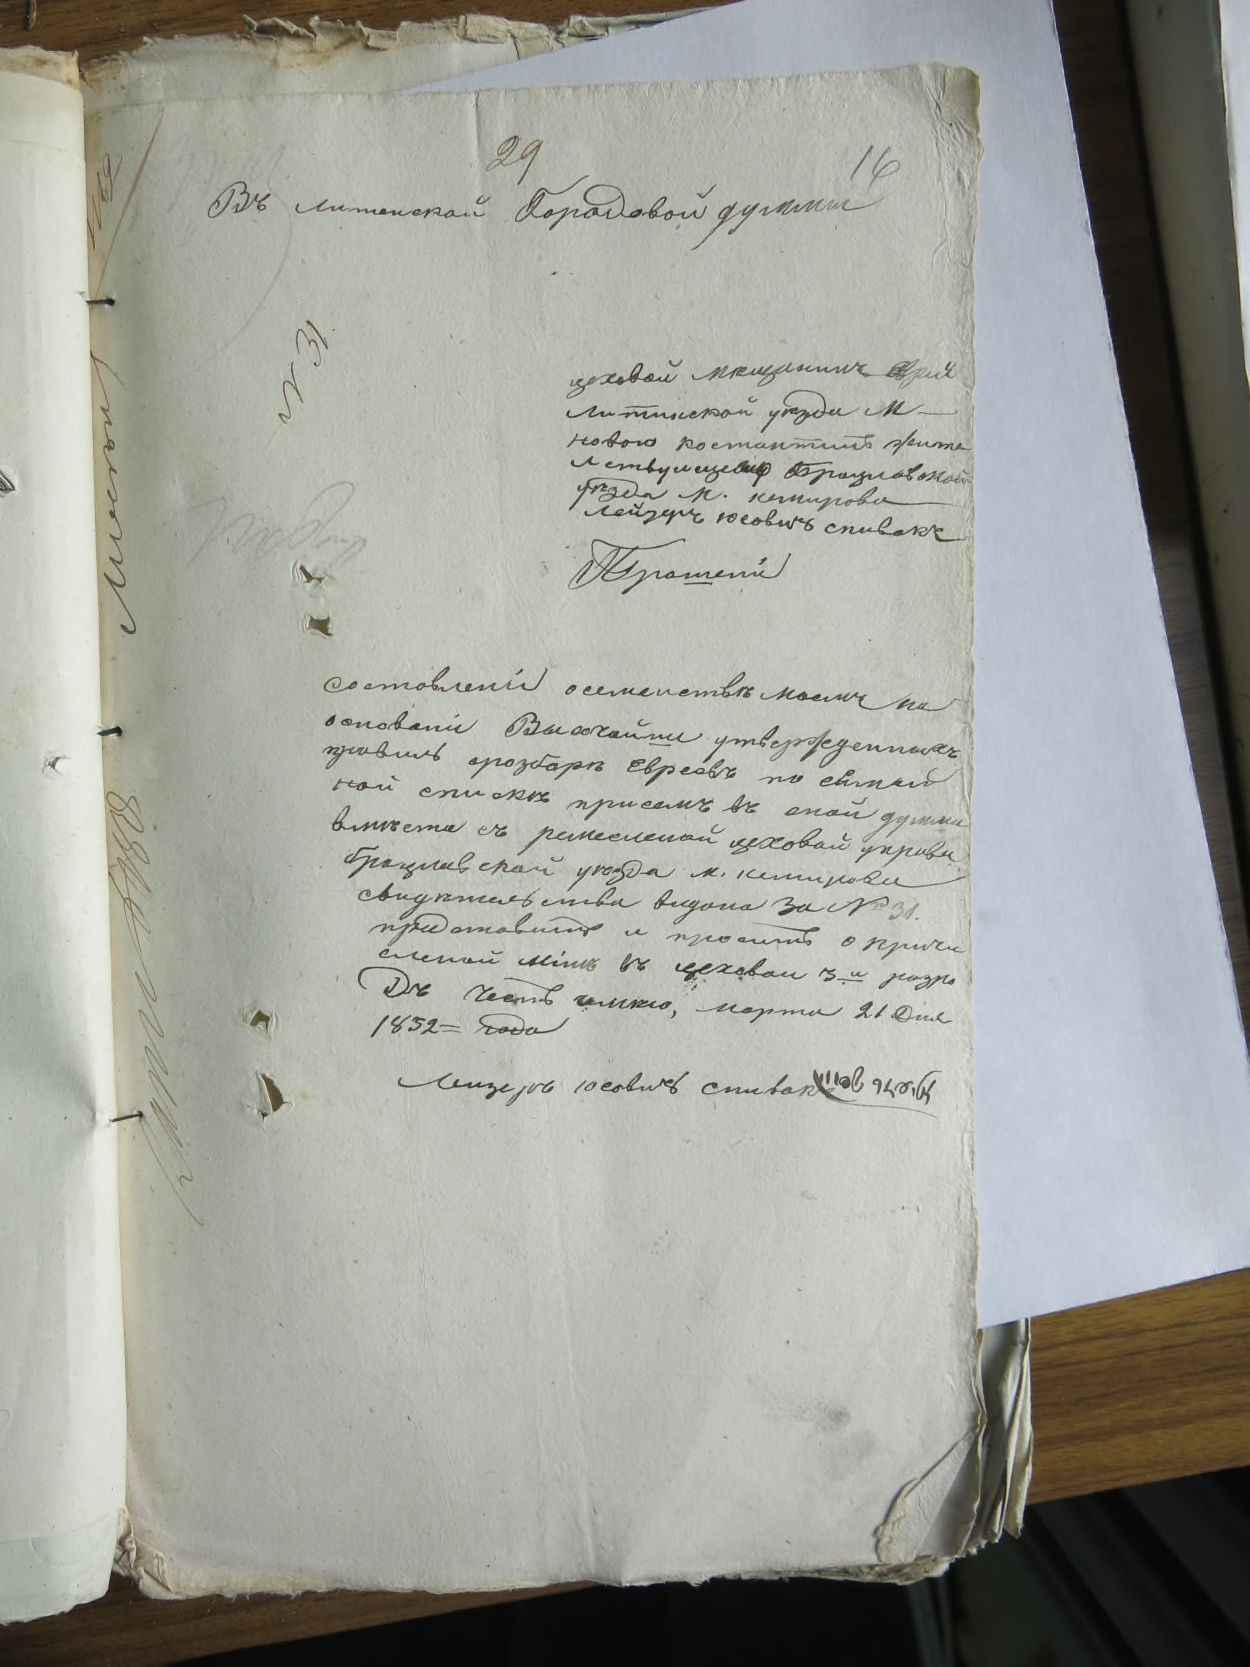 29
16
Въ литенской Городовой думми
N 31
цеховой мещанинъ Еврей
литинской уезда м
новою костантинъ жите
лствующею Брацлавской
уезда м. немирова
Лейзеръ юсовичъ спивакъ
Прошеніи
составленіи осемействъ моемъ на
основаніи Высочайши утвержденныхъ
правилъ орозборе Евреевъ по
ной списокъ присемъ въ оной думми
вместа съ ремесленой цеховой управи
брацлавской уезда м. немирова
свидетельства видана за № 31.
придставить и просить о причи
сленой мине въ цеховаи 3-и розро
Дъ честь имию, марта 21 Дня
1852= года
Леизеръ юсовичъ спивакъ